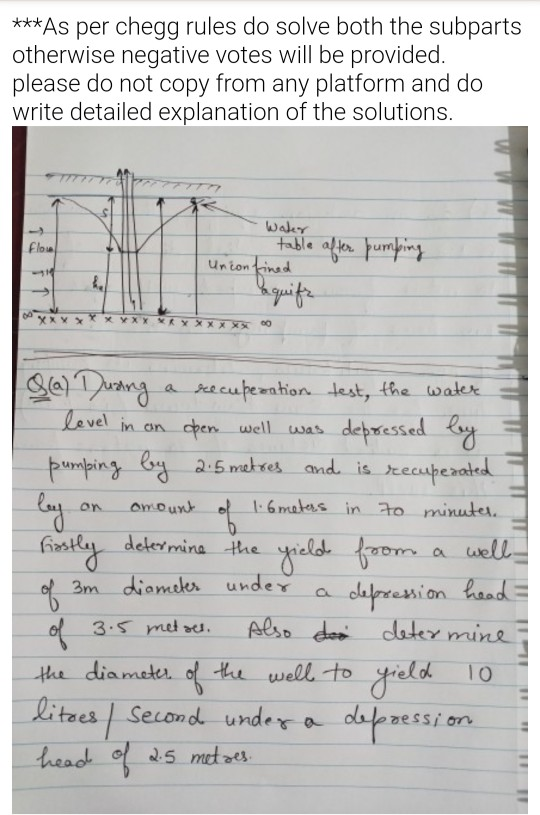 ***As per chegg rules do solve both the subparts
otherwise negative votes will be provided.
please do not copy from any platform and do
write detailed explanation of the solutions.
S
Water
table after pumping
Flow
Unconfined
aquifr
h
∞ x x x x x x x x x x x x x x x x x x ∞
Q(a) During a recuperation test, the water
level in an open well was depressed by
pumping by 2.5 metres and is recuperated
by an amount of 1.6 meters in 70 minutes.
Firstly determine the yield from a well
of 3m diameter under a depression head
of 3.5 metres. Also determine
the diameter of the well to yield 10
litres / Second under a depression
head of 2.5 metres.